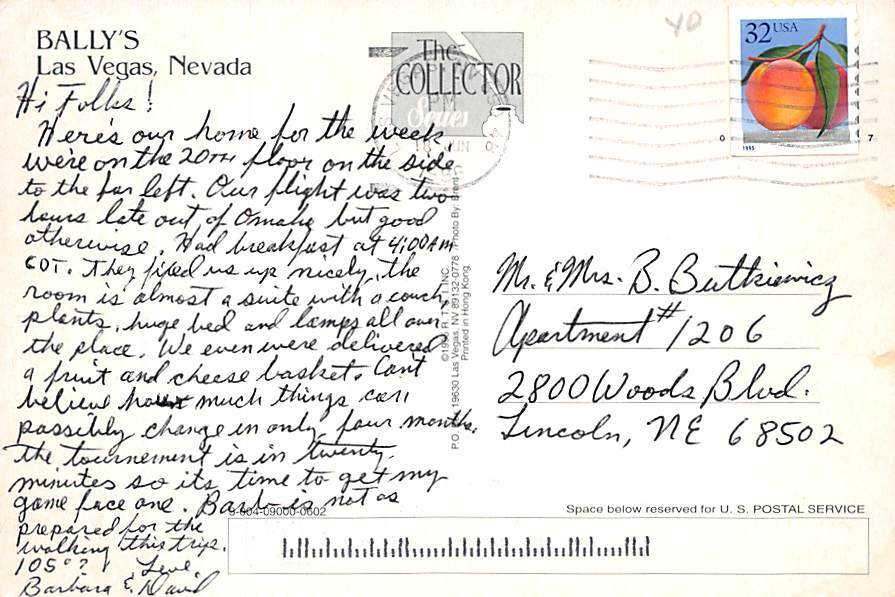 BALLY'S
Las Vegas, Nevada
The
COLLECTOR
Series
PM
18 JUN
32 USA
1995
Hi Folks!
Here's our home for the week
we're on the 20TH floor on the side
to the far left. Our flight was two
hours late out of Omaha but good
otherwise. Had breakfast at 4:00AM
CDT. They fixed us up nicely, the
room is almost a suite with a couch,
plants, huge bed and lamps all over
the place. We even were delivered
a fruit and cheese basket. Can't
believe how much things can
possibly change in only four months.
The tournement is in twenty
minutes so its time to get my
game face one. Barb is not as
prepared for the
walking this trip.
105°?! Love
Barbara & David
R.T.
INC.
P.O.
19630 Las Vegas, NV 89132-0778
Photo By:
Printed in Hong Kong
Mr. & Mrs. B. Butkiewicz
Apartment #1206
2800 Woods Blvd.
Lincoln, NE 68502
-604-09000-0602
Space below reserved for U. S. POSTAL SERVICE